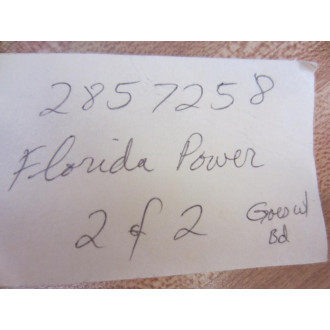 2857258
Florida Power
2 of 2
Goes w/
Bd